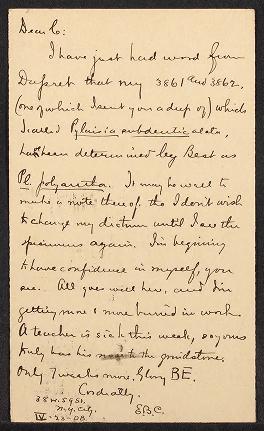 Dear Co:
I have just had word from
Dufret that my 3861 and 3862,
(one of which I sent you a dup of) which
I called Pluisia subdenticulata,
has been determined by Best as
Pl. polyantha. It may be well to
make a note thereof, tho I don't wish
to change my dictum until I see the
specimens again. I'm beginning
to have confidence in myself, you
see. All goes well here, and I'm
getting more & more buried in work.
A teacher is sick this week, so yours
truly has his to the grindstone.
Only 7 weeks more, Glory BE.
Cordially,
E.B.C.
38 W. 59 St.
N.Y. City.
IV-23-08